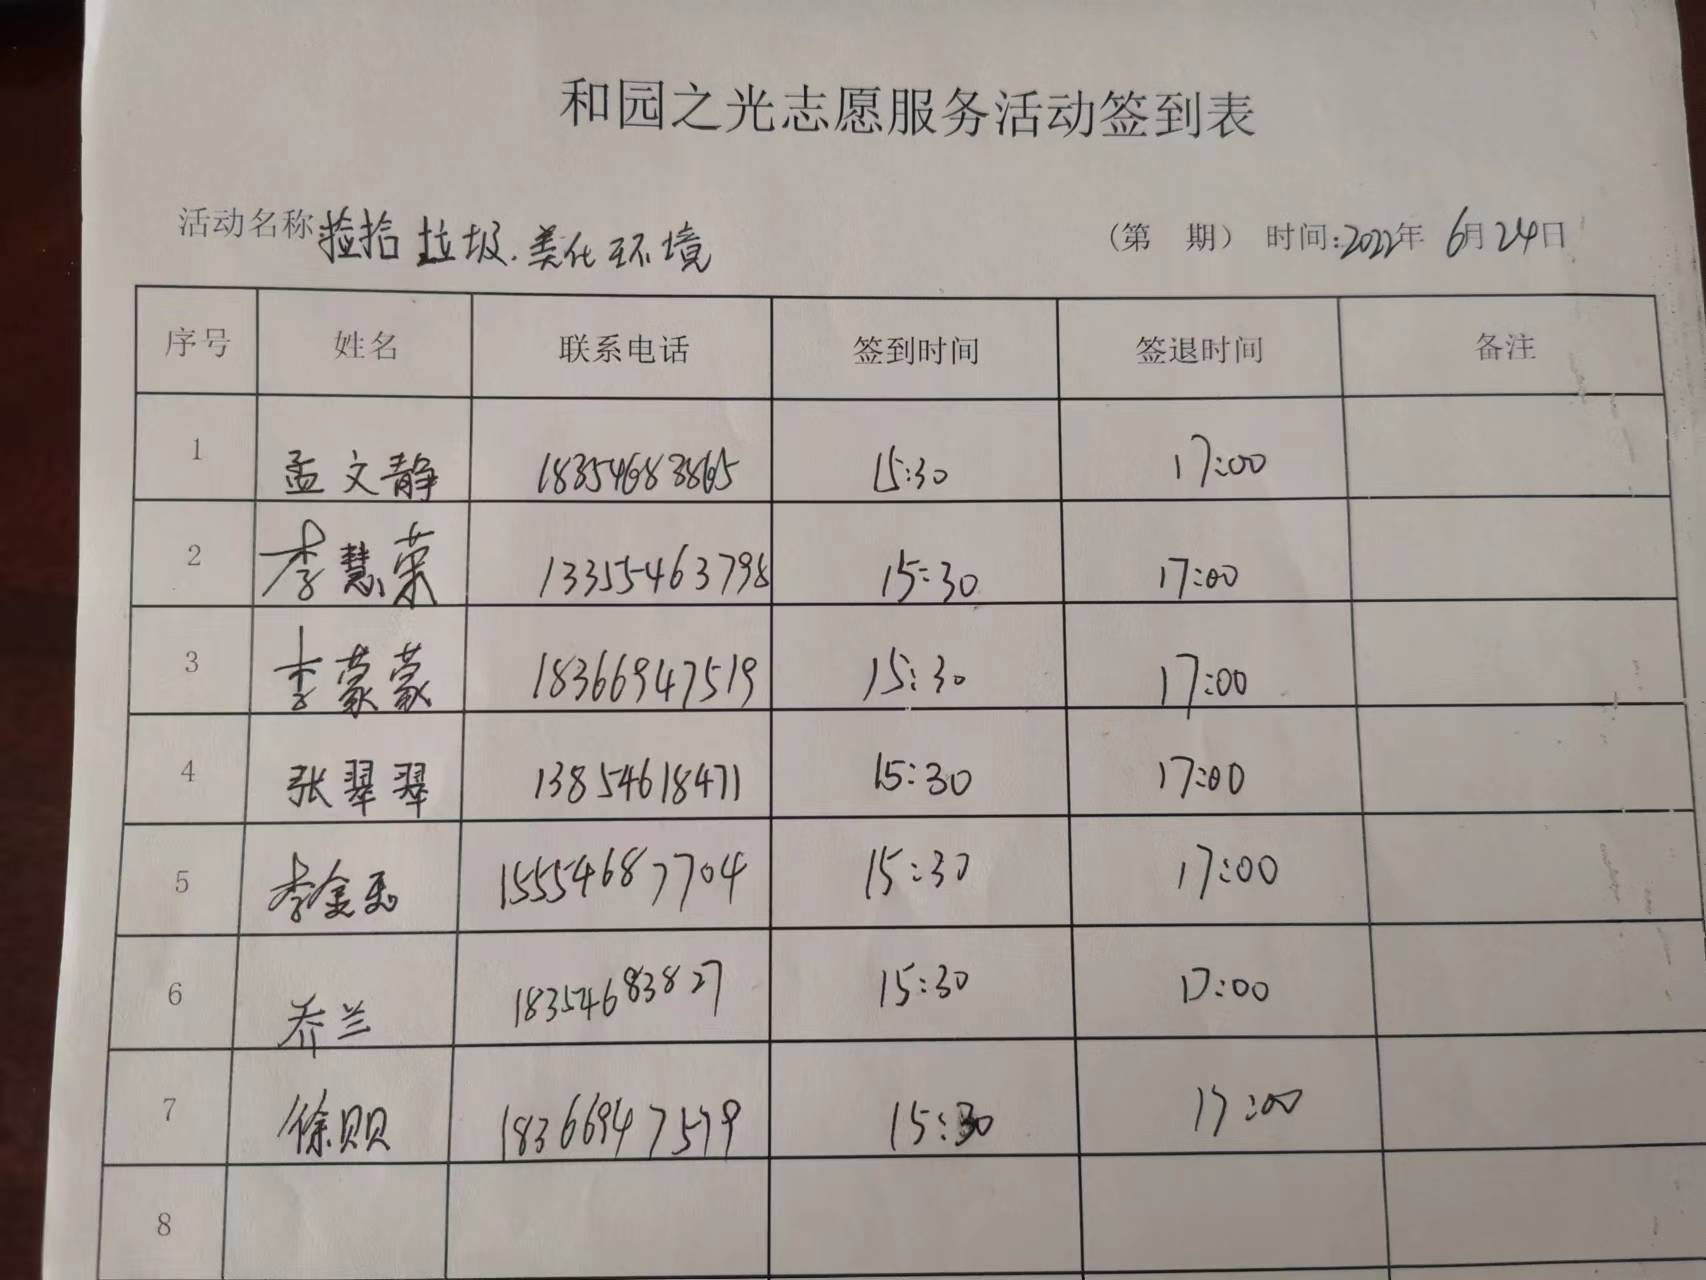 和园之光志愿服务活动签到表
活动名称 捡拾垃圾.美化环境 (第 期) 时间:2022年 6月24日
序号 姓名 联系电话 签到时间 签退时间 备注
1 孟文静 18354683865 15:30 17:00
2 李慧荣 13355463798 15:30 17:00
3 李蒙蒙 18366947519 15:30 17:00
4 张翠翠 13854618471 15:30 17:00
5 李金 15554687704 15:30 17:00
6 乔兰 18354683827 15:30 17:00
7 徐贝贝 18366947579 15:30 17:00
8